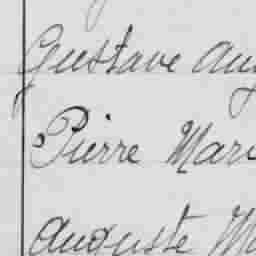 Gustave Aug
Pierre Mari
Auguste M